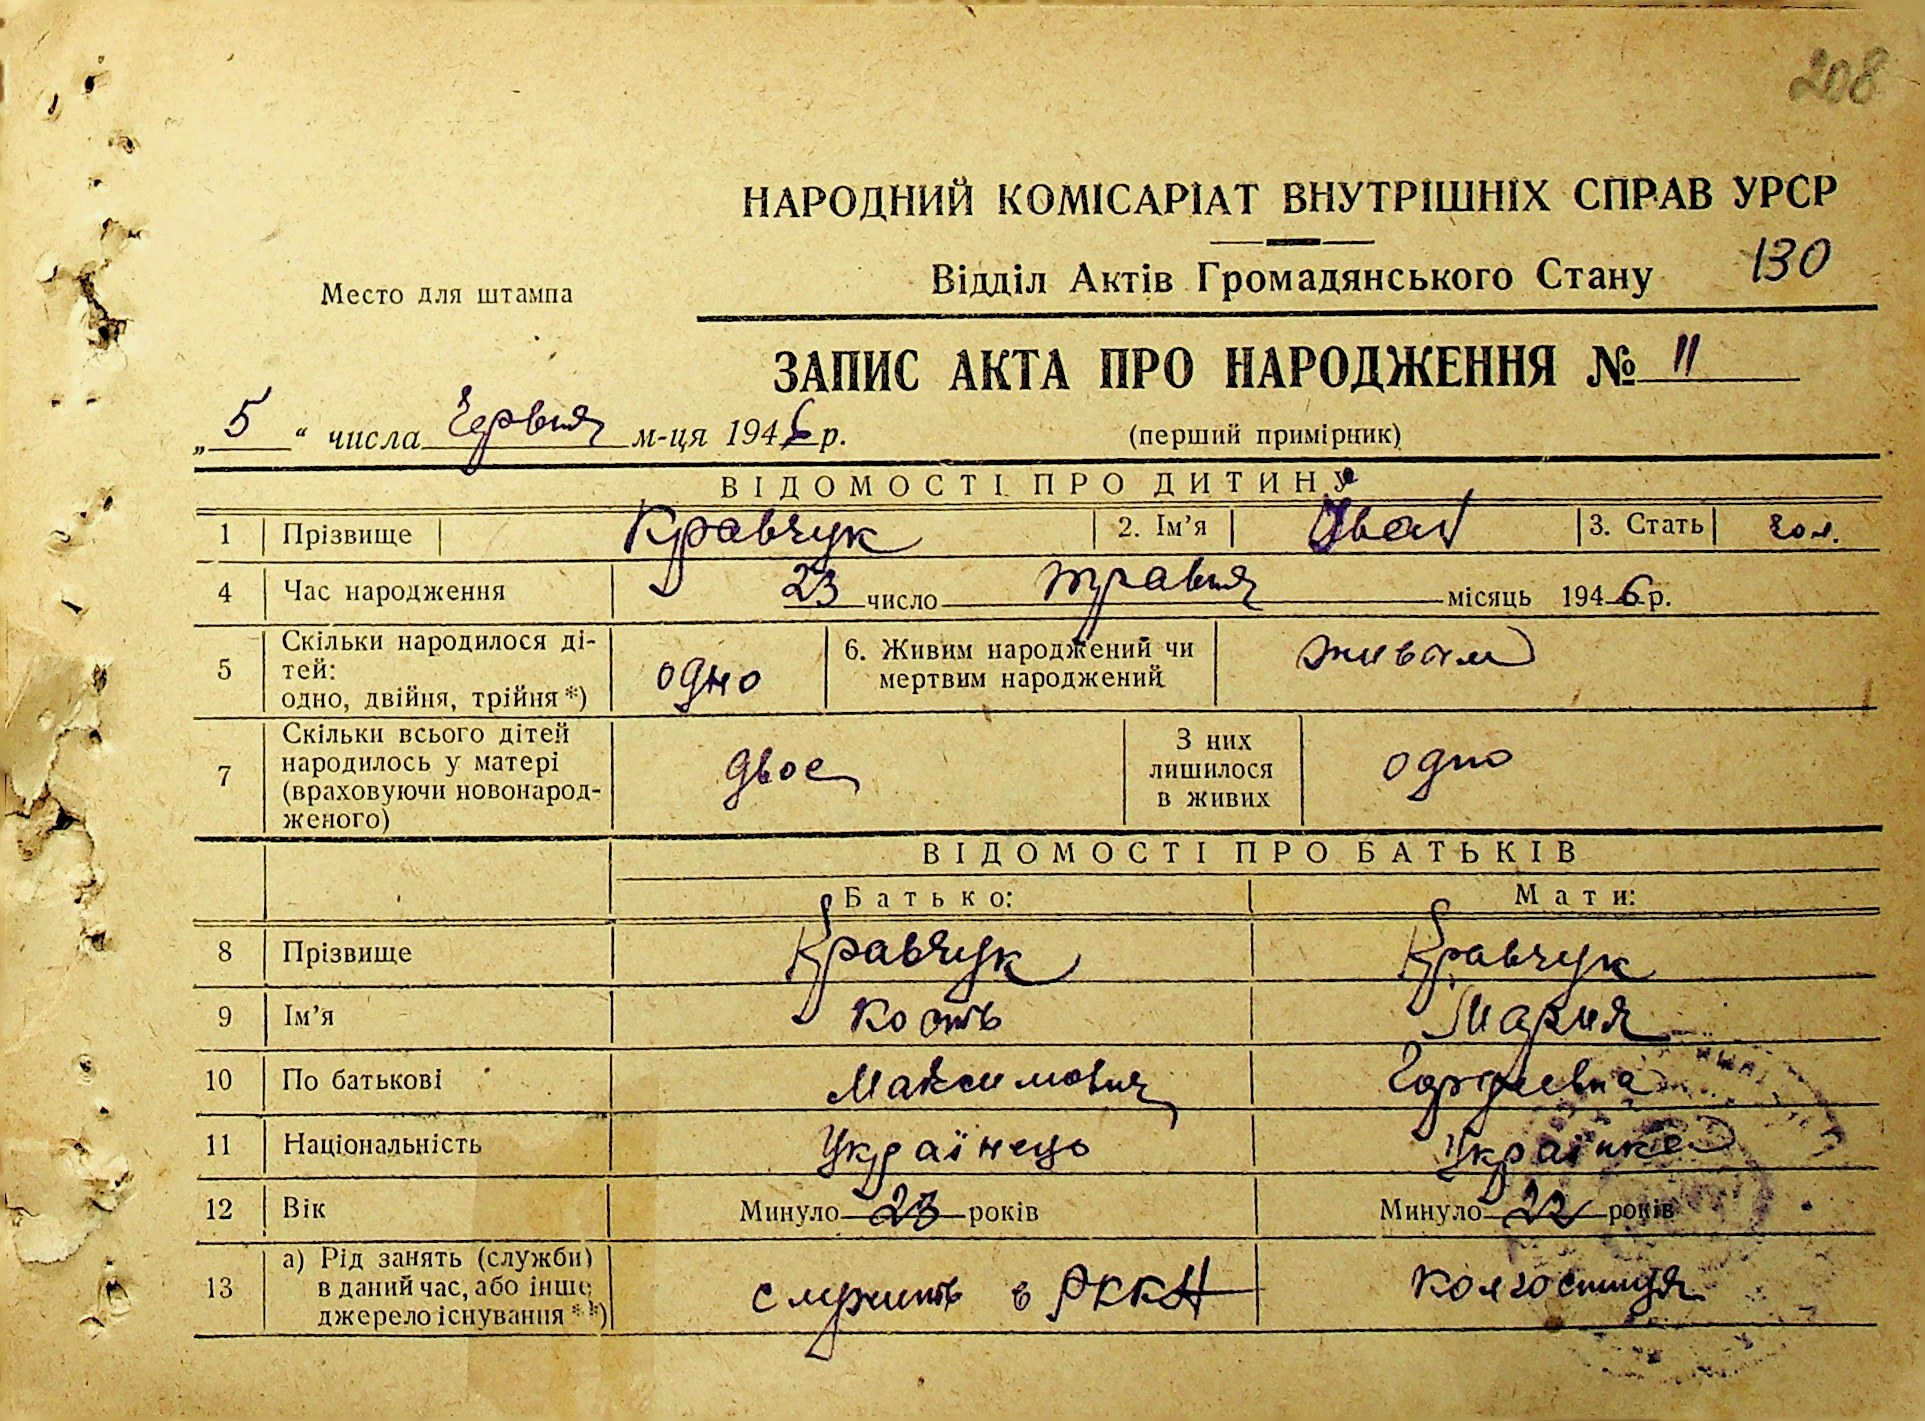 208
НАРОДНИЙ КОМІСАРІАТ ВНУТРІШНІХ СПРАВ УРСР
Відділ Актів Громадянського Стану 130
Место для штампа
ЗАПИС АКТА ПРО НАРОДЖЕННЯ № 11
„5“ числа Червня м-ця 1946 р. (перший примірник)
ВІДОМОСТІ ПРО ДИТИНУ
1 Прізвище Кравчук 2. Ім’я Іван 3. Стать чол.
4 Час народження 23 число травня місяць 1946 р.
5 Скільки народилося ді-
тей:
одно, двійня, трійня*) одно 6. Живим народжений чи
мертвим народжений живим
7 Скільки всього дітей
народилось у матері
(враховуючи новонарод-
женого) двое З них
лишилося
в живих одно
ВІДОМОСТІ ПРО БАТЬКІВ
Батько: Мати:
8 Прізвище Кравчук Кравчук
9 Ім’я Кость Мария
10 По батькові Максимович
11 Національність Українець Українка
12 Вік Минуло 23 років Минуло 22 років
13 а) Рід занять (службн)
в даний час, або інше
джерело існування**) служить в РККА Колгоспниця